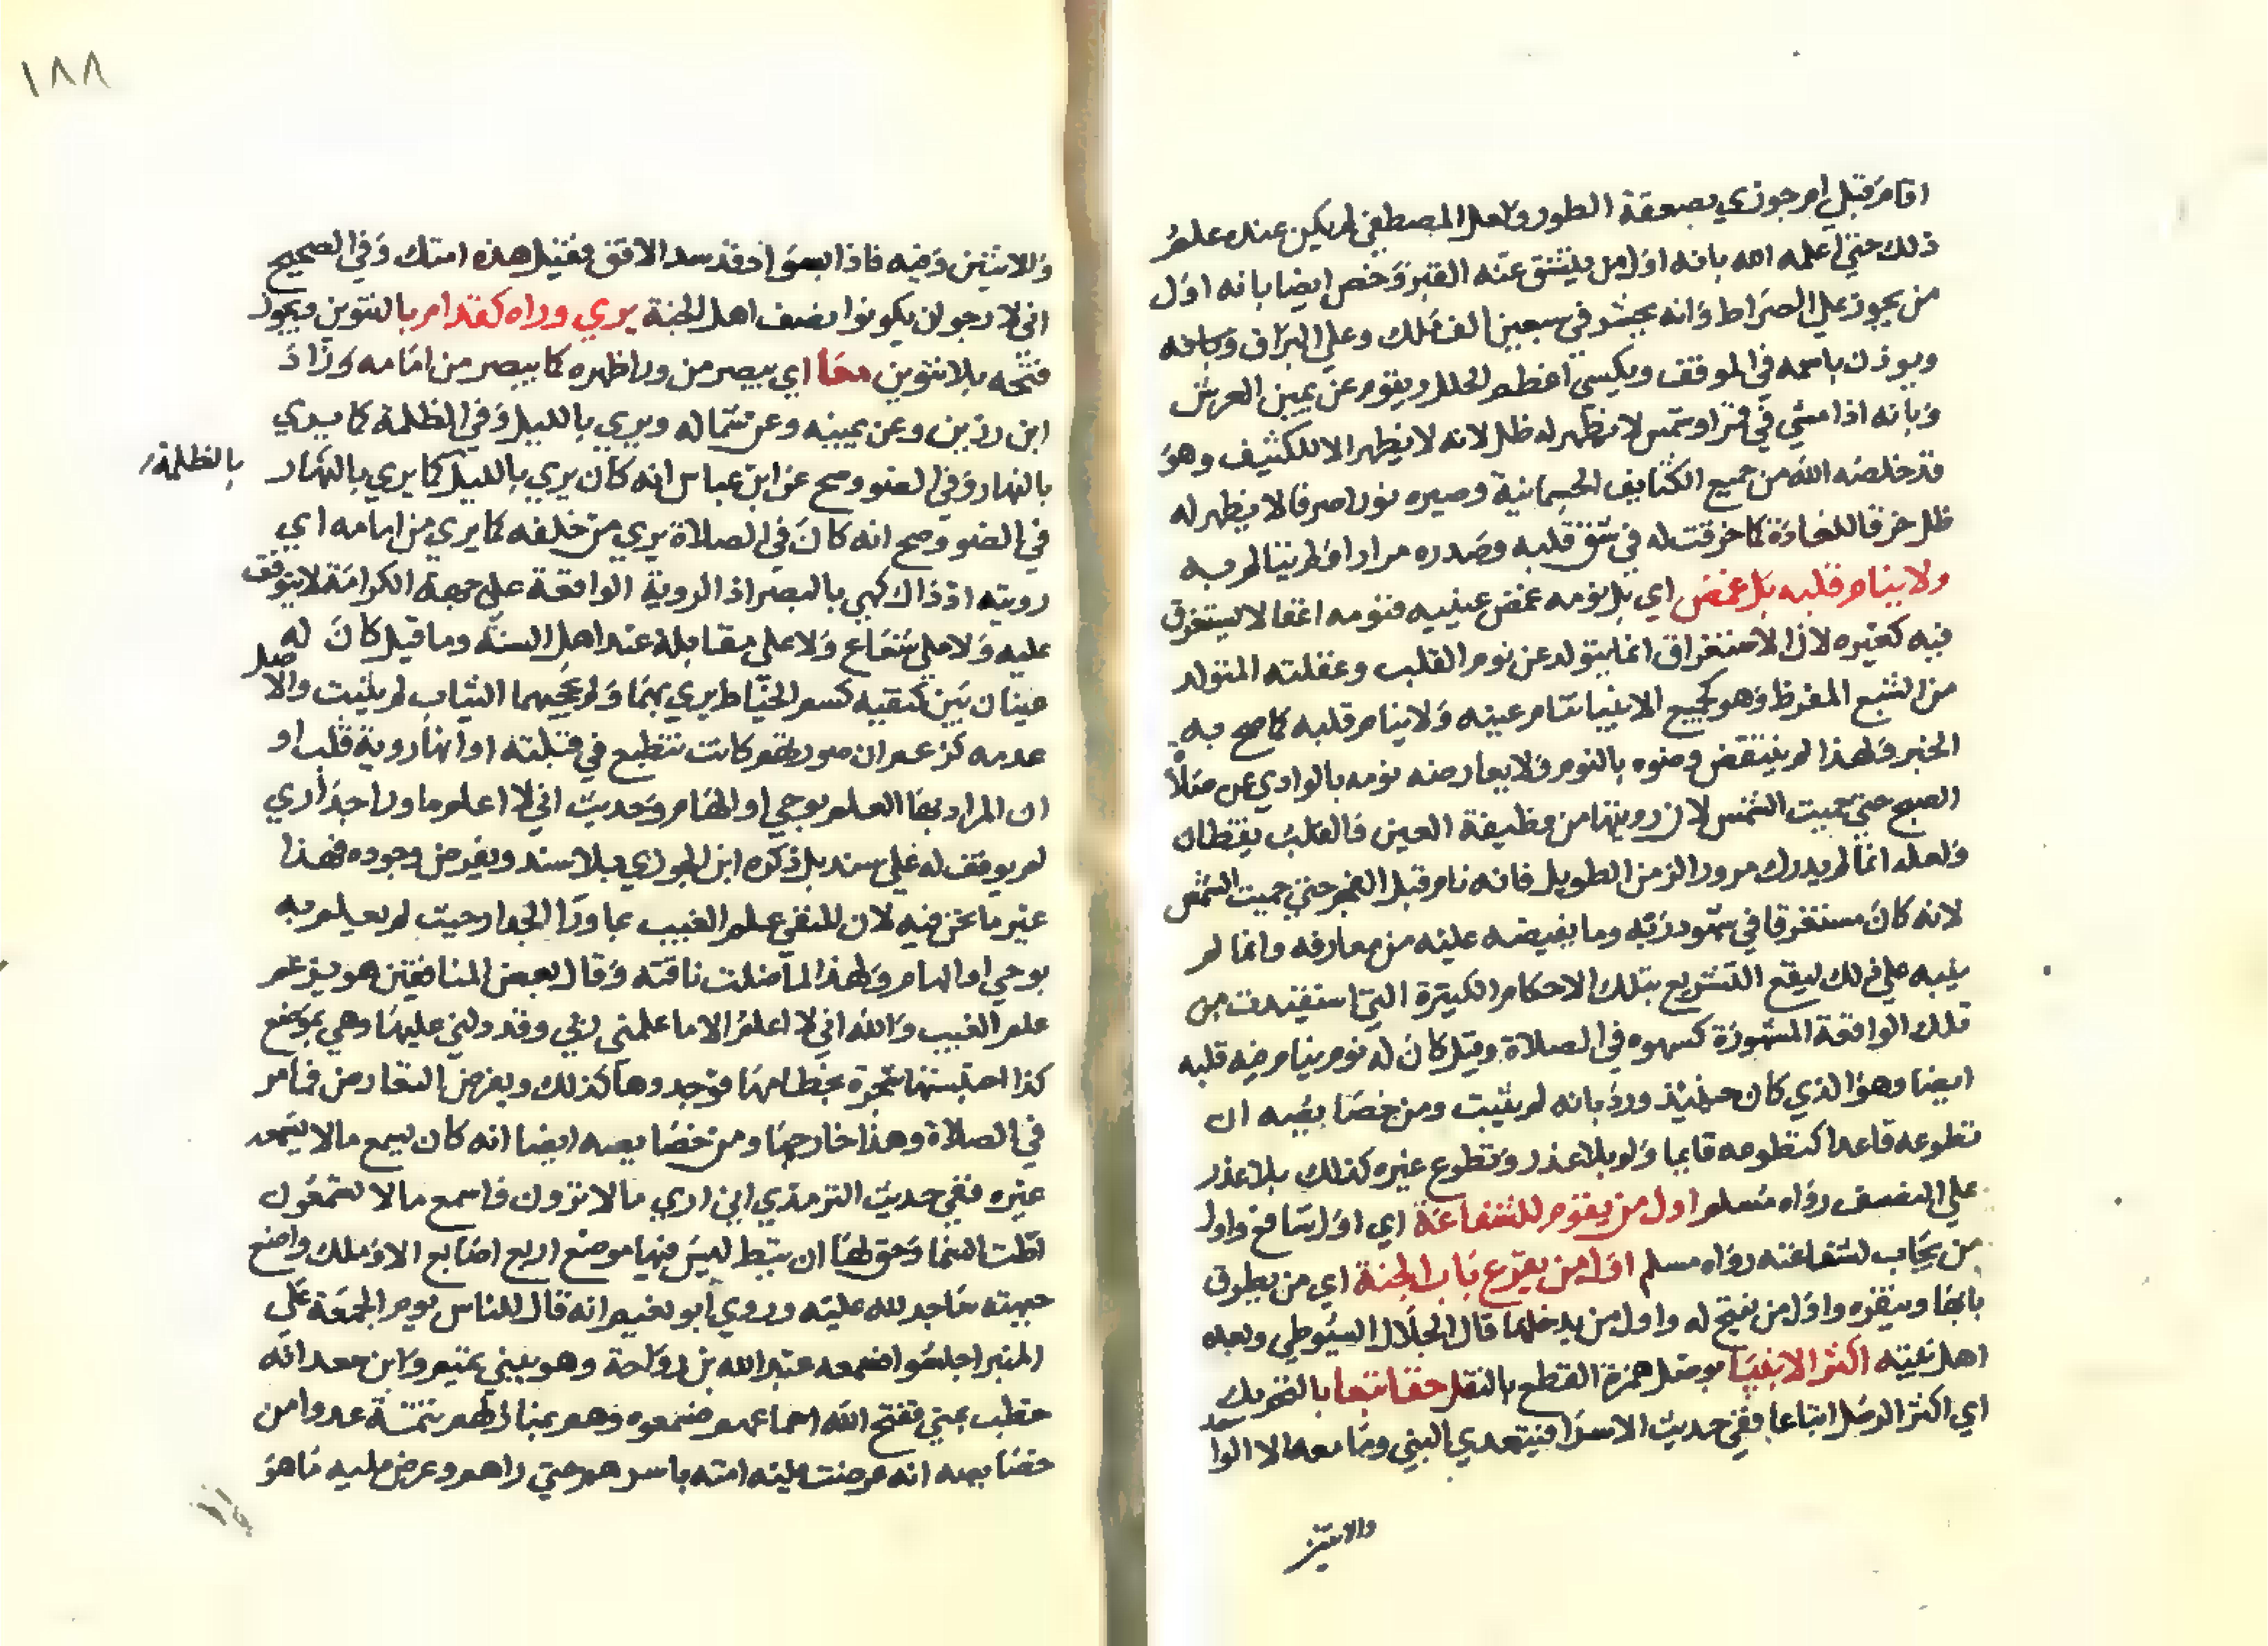 افام قبلي ام جوزي بصعقة الطور ولعل المصطفي لم يكن عنده علم
ذلك حتي اعلمه الله بانه اول من ينشق عنه القبر وخص ايضا بانه اول
من يجوز علي الصراط وانه يحشر في سبعين الف ملك وعلي البراق
ويوذن باسمه في الموقف ويكسي اعظم الحلل ويقوم عن يمين العرش
وبانه اذا مشي في قمر او شمس لا يظهر له ظل لانه لا يظهر الا للكثيف وهو
قد خلصه الله من جميع الكثايف الجسمانية وصيره نورا صرفا لا يظهر له
ظل خرقا للعادة كما خرقت له في شق قلبه وصدره مرارا فلم يتالم به
ولا ينام قلبه بل غمض اي بل نومه غمض عينيه فنومه اغفا لا يستغرق
فيه كغيره لان الاستغراق انما يتولد عن نوم القلب وغفلته المتولد
من الشبع المفرط وهو كجميع الانبيا تنام عينه ولا ينام قلبه كما صح به
الخبر ولهذا لم ينتقض وضوه بالنوم ولا يعارضه نومه بالوادي عن صلاة
الصبح حتي حميت الشمس لان رويتها من وظيفة العين والقلب يقظان
ولعله انما لم يدرك مرور الزمن الطويل فانه نام قبل الفجر حتي حميت الشمس
لانه كان مستغرقا في شهود ربه وما يفيضه عليه من معارفه وانما لم
ينبه علي ذلك ليقع التشريع بتلك الاحكام الكثيرة التي استفيدت من
تلك الواقعة المشهورة كسهوه في الصلاة وقيل كان له نوم ينام فيه قلبه
ايضا وهو الذي كان حينيذ ورد بانه لم يثبت ومن خصايصه ان
تطوعه قاعدا كتطوعه قايما ولو بلا عذر وتطوع غيره كذلك بلا عذر
علي النصف رواه مسلم اول من يقوم للشفاعة اي اول شافع واول
من يجاب لشفاعته رواه مسلم اول من يقرع باب الجنة اي من يطرق
بابها وينقره واول من يفتح له واول من يدخلها قال الجلال السيوطي وبعده
اهل بيته اكثر الانبيا بوصل همزة القطع بالنقل حقا تبعا بالتحريك
اي اكثر الرسل اتباعا ففي حديث الاسرا فيتعدي النبي وما معه الا الواحد
والاثنين
١٨٨
والاثنين وفيه فاذا بسواد قد سد الافق فقيل هذه امتك وفي الصحيح
اني لارجو ان يكونوا نصف اهل الجنة يري وراه كقدام بالتنوين ويجوز
فتحه بلا تنوين معا اي يبصر من ورا ظهره كما يبصر من امامه وزاد
ابن رزين وعن يمينه وعن شماله ويري بالليل وفي الظلمة كما يري
بالنهار وفي الضو وصح عن ابن عباس انه كان يري بالليل كما يري بالنهار
بالظلمة
في الضو وصح انه كان في الصلاة يري من خلفه كما يري من امامه اي
رويته اذ ذاك كهي بالبصر اذ الروية الواقعة علي جهة الكرامة لا يتوقف
عليه ولا علي شعاع ولا علي مقابلة عند اهل السنة وما قيل كان له
عينان بين كتفيه كسم الخياط يري بهما ولم يحجبهما الثياب لم يثبت والاصل
عدمه كزعم ان صورهم كانت تنطبع في قبلته او انها روية قلب او
ان المراد بها العلم بوحي او الهام وحديث اني لا اعلم ما ورا جداري
لم يوقف له علي سند بل ذكره ابن الجوزي بلا سند وبفرض وجوده فهذا
غير ما نحن فيه لان المنفي علم الغيب بما ورا الجدار حيث لم يعلم به
بوحي او الهام ولهذا لما ضلت ناقته وقال بعض المنافقين هو يزعم
علم الغيب والله اني لا اعلم الا ما علمني ربي وقد دلني عليها وهي بموضع
كذا احتبستها شجرة بخطامها فوجدوها كذلك وبفرض التعارض فما مر
في الصلاة وهذا خارجها ومن خصايصه ايضا انه كان يسمع ما لا يسمعه
غيره ففي حديث الترمذي اني اري ما لا ترون واسمع ما لا تسمعون
اطت السما وحق لها ان تيط ليس فيها موضع اربع اصابع الا وملك واضع
جبهته ساجد لله عليه وروي ابو نعيم انه قال للناس يوم الجمعة علي
المنبر اجلسوا فسمعه عبد الله بن رواحة وهو ببني تميم وابن سعد انه
خطب بمني ففتح الله اسماعهم فسمعوه وهم بمنازلهم تتمة عدوا من
خصايصه انه عرضت عليه امته باسرهم حتي راهم وعرض عليه ما هو